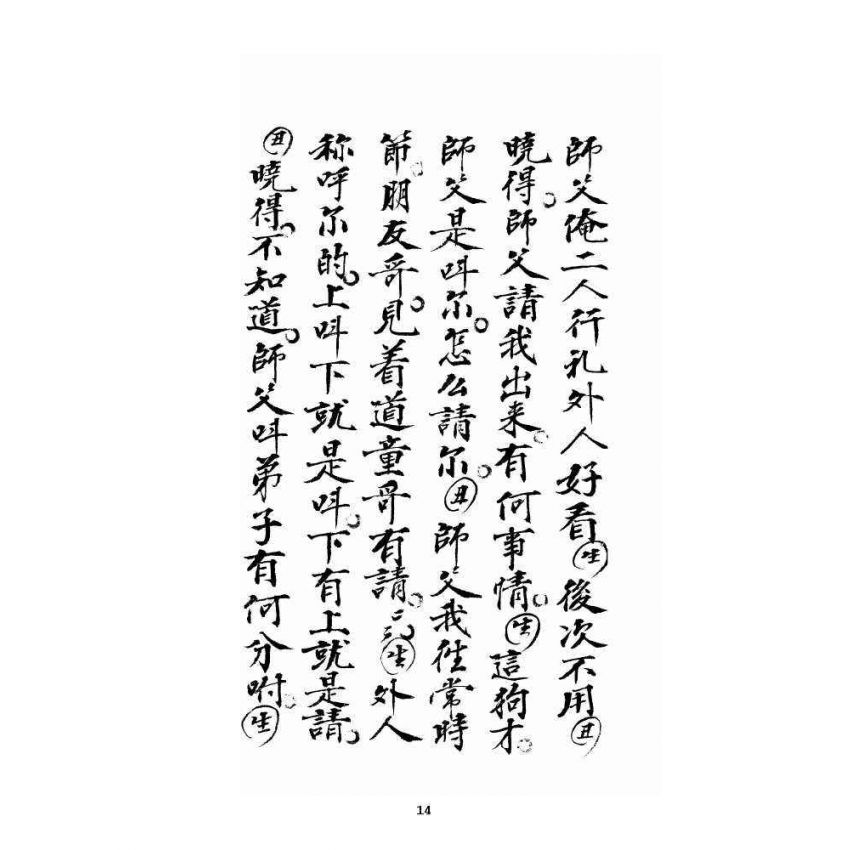 師父俺二人行礼外人好看生後次不用丑
曉得。師父請我出来。有何事情。生這狗才。
師父是呌尔。怎么請尔。丑師父我徃常時
節。朋友哥。見着道童哥有請。生外人
称呼尔的。上呌下就是呌。下有上就是請。
丑曉得。不知道。師父呌弟子有何分咐。生
14